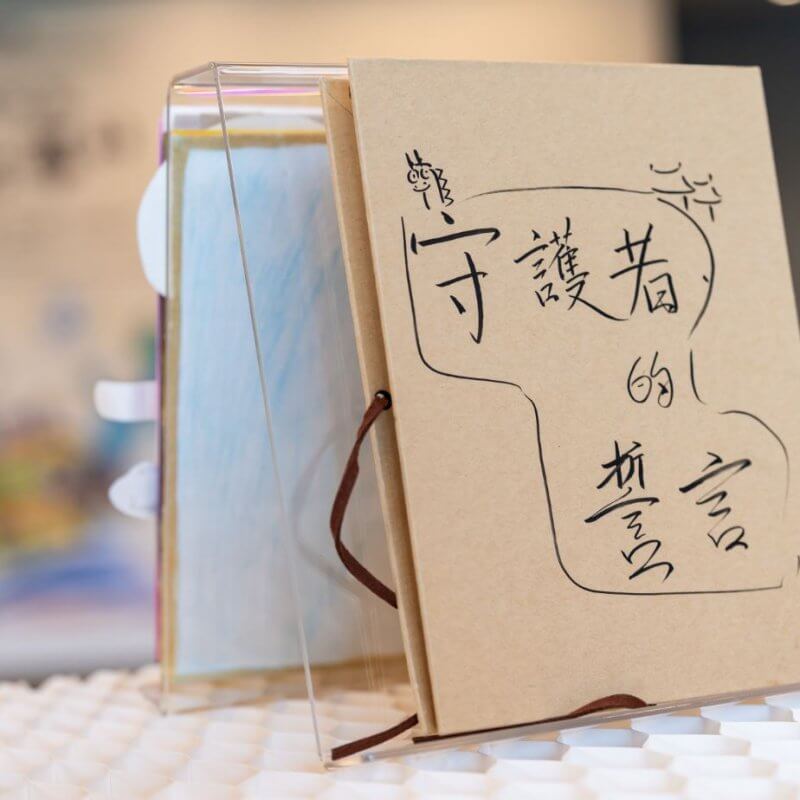 守護者
的
誓言